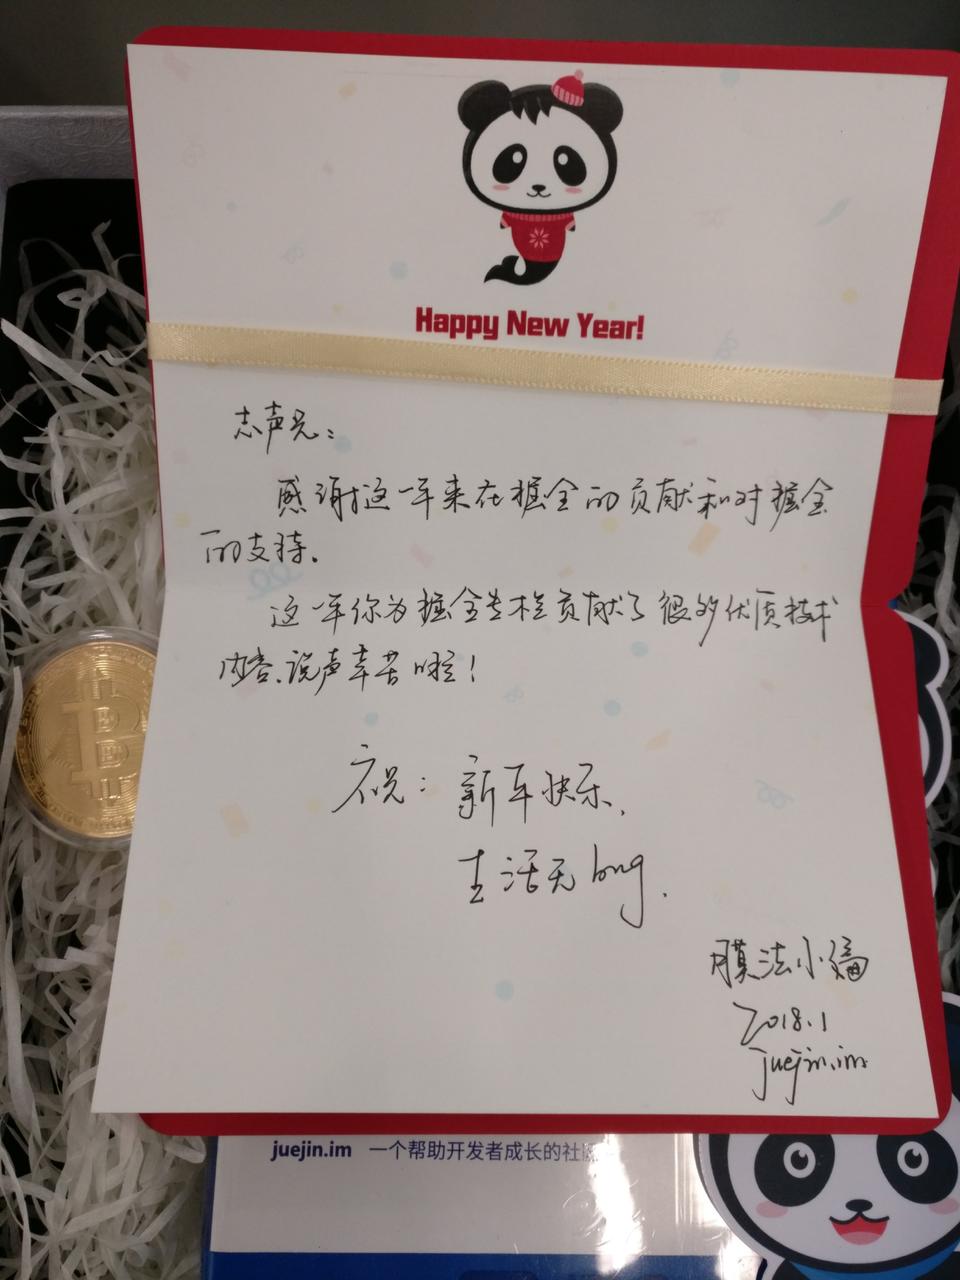 Happy New Year!
志声兄：
感谢这一年来在掘金的贡献和对掘金
的支持.
这一年你为掘金专栏贡献了很多优质技术
内容.说声辛苦啦！
祝：新年快乐.
生活无bug.
膜法小编
2018.1
juejin.im
juejin.im 一个帮助开发者成长的社区